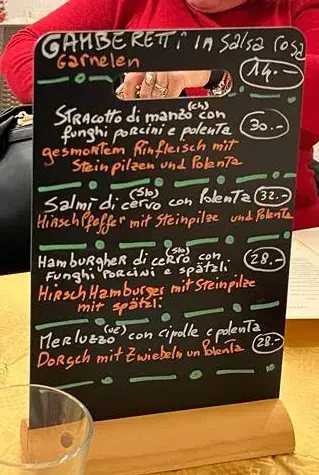 GAMBERETTI in salsa rosa
Garnelen
14.-
STRACOTTO di manzo (ch) con
funghi porcini e polenta
30.-
gesmortem Rinfleisch mit
Steinpilzen und Polenta
Salmi di cervo (Slo) con Polenta
32.-
Hirschpfeffer mit Steinpilze und Polenta
Hamburgher di cervo (Slo) con
Funghi Porcini e spätzli
28.-
Hirsch Hamburger mit Steinpilze
mit spätzli
Merluzzo (UE) con cipolle e polenta
28.-
Dorsch mit Zwiebeln un Polenta